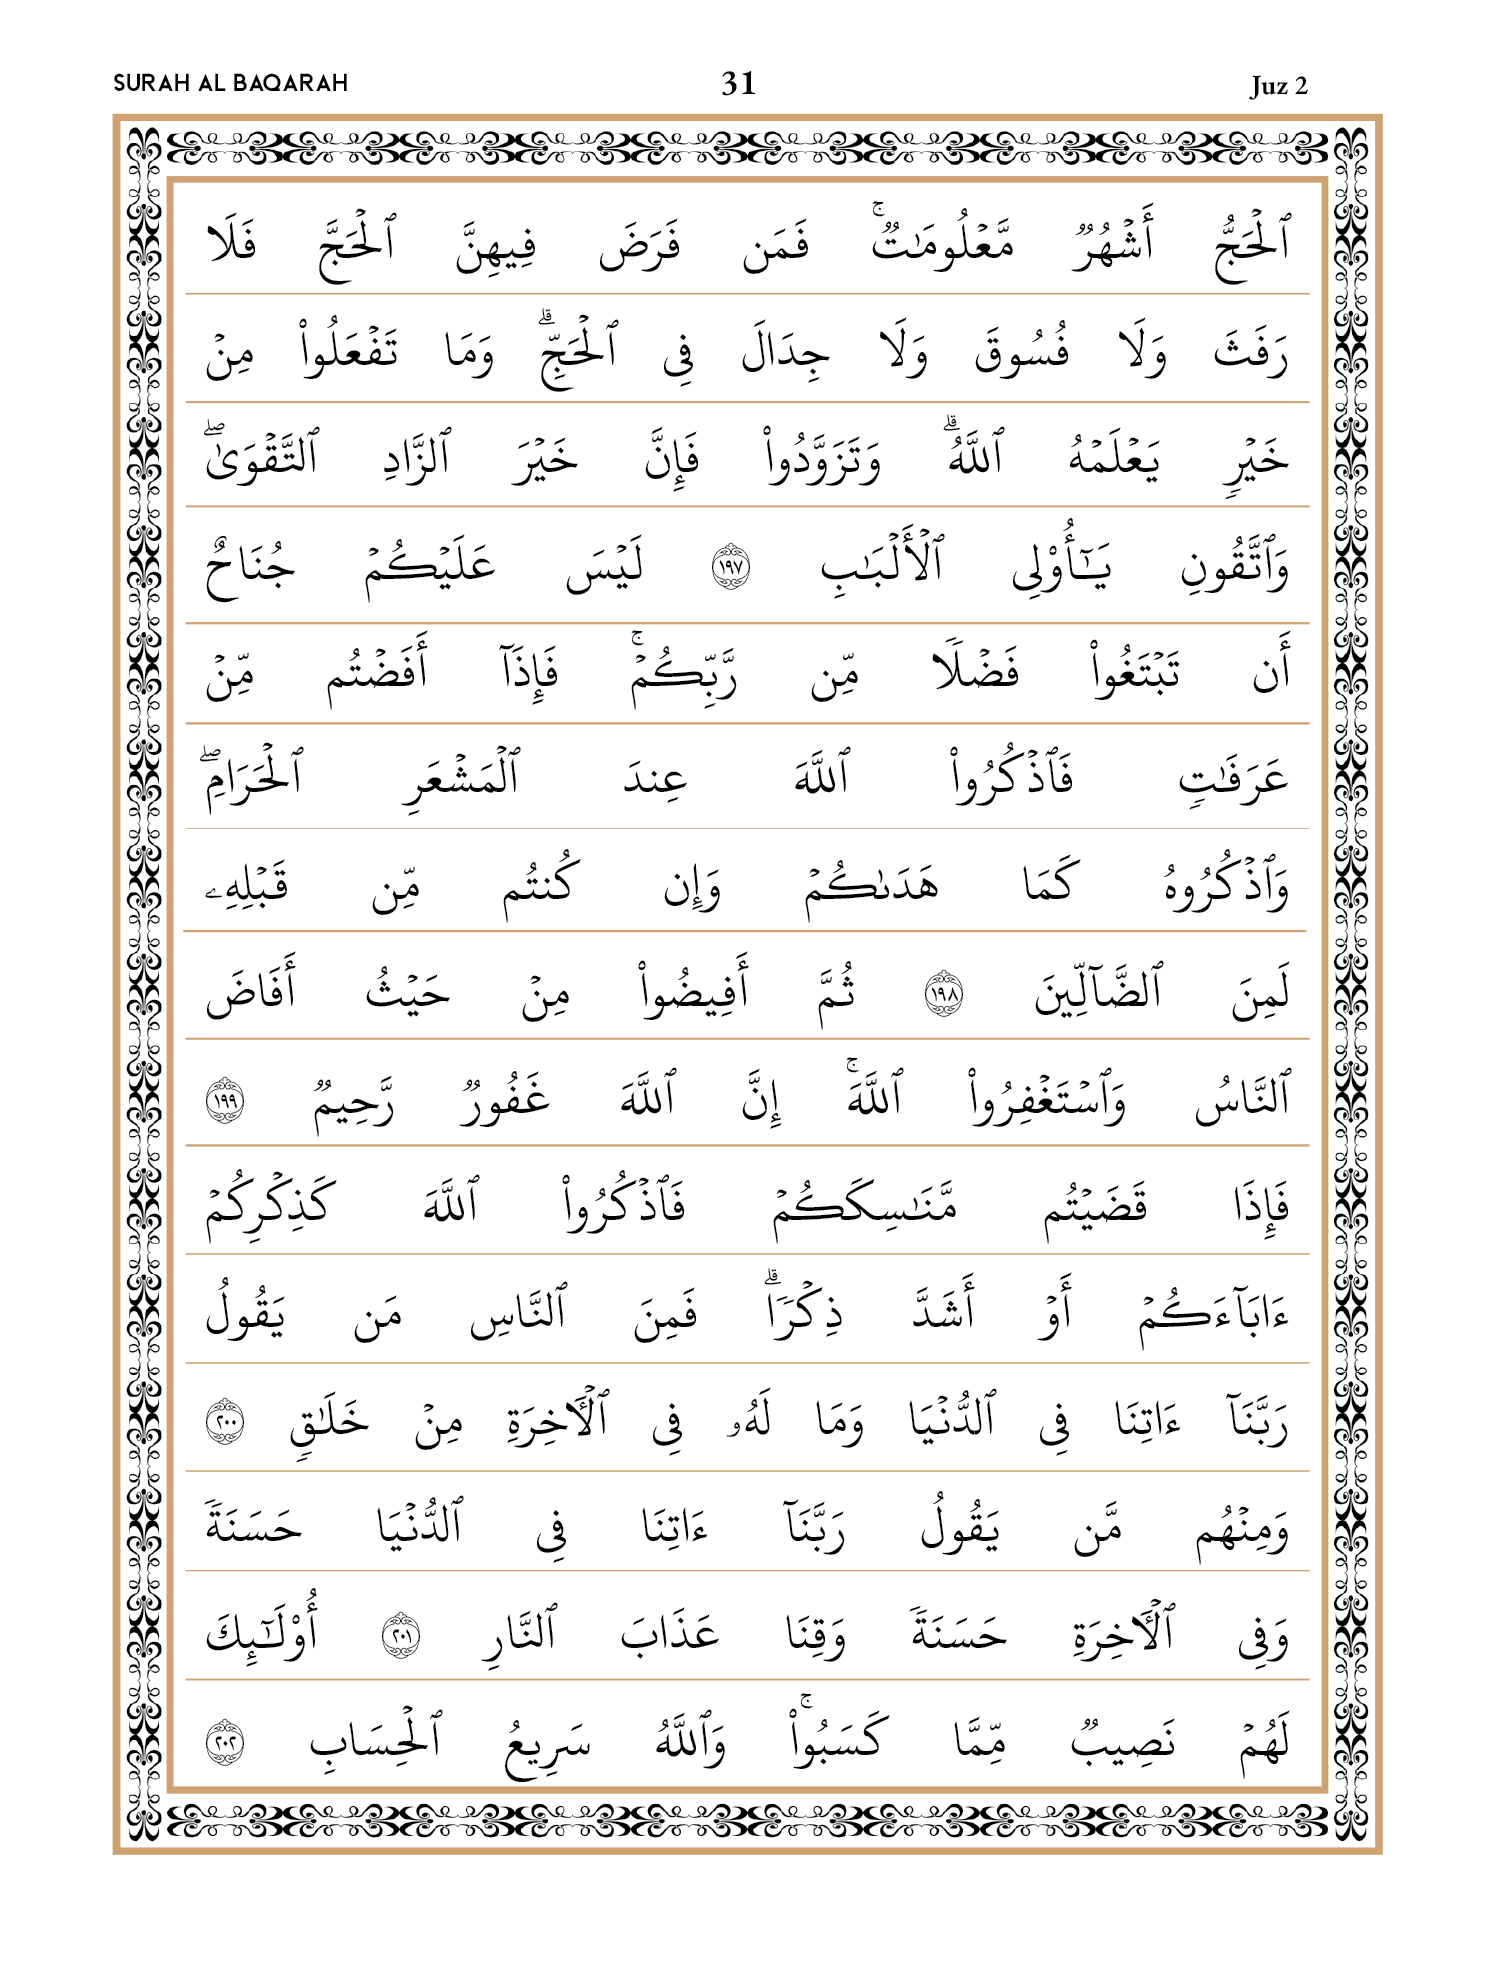 SURAH AL BAQARAH 31 Juz 2
ٱلۡحَجُّ أَشۡهُرٞ مَّعۡلُومَٰتٞۚ فَمَن فَرَضَ فِيهِنَّ ٱلۡحَجَّ فَلَا
رَفَثَ وَلَا فُسُوقَ وَلَا جِدَالَ فِي ٱلۡحَجِّۗ وَمَا تَفۡعَلُواْ مِنۡ
خَيۡرٖ يَعۡلَمۡهُ ٱللَّهُۗ وَتَزَوَّدُواْ فَإِنَّ خَيۡرَ ٱلزَّادِ ٱلتَّقۡوَىٰۖ
وَٱتَّقُونِ يَٰٓأُوْلِي ٱلۡأَلۡبَٰبِ ١٩٧ لَيۡسَ عَلَيۡكُمۡ جُنَاحٌ
أَن تَبۡتَغُواْ فَضۡلٗا مِّن رَّبِّكُمۡۚ فَإِذَآ أَفَضۡتُم مِّنۡ
عَرَفَٰتٖ فَٱذۡكُرُواْ ٱللَّهَ عِندَ ٱلۡمَشۡعَرِ ٱلۡحَرَامِۖ
وَٱذۡكُرُوهُ كَمَا هَدَىٰكُمۡ وَإِن كُنتُم مِّن قَبۡلِهِۦ
لَمِنَ ٱلضَّآلِّينَ ١٩٨ ثُمَّ أَفِيضُواْ مِنۡ حَيۡثُ أَفَاضَ
ٱلنَّاسُ وَٱسۡتَغۡفِرُواْ ٱللَّهَۚ إِنَّ ٱللَّهَ غَفُورٞ رَّحِيمٞ ١٩٩
فَإِذَا قَضَيۡتُم مَّنَٰسِكَكُمۡ فَٱذۡكُرُواْ ٱللَّهَ كَذِكۡرِكُمۡ
ءَابَآءَكُمۡ أَوۡ أَشَدَّ ذِكۡرٗاۗ فَمِنَ ٱلنَّاسِ مَن يَقُولُ
رَبَّنَآ ءَاتِنَا فِي ٱلدُّنۡيَا وَمَا لَهُۥ فِي ٱلۡأٓخِرَةِ مِنۡ خَلَٰقٖ ٢٠٠
وَمِنۡهُم مَّن يَقُولُ رَبَّنَآ ءَاتِنَا فِي ٱلدُّنۡيَا حَسَنَةٗ
وَفِي ٱلۡأٓخِرَةِ حَسَنَةٗ وَقِنَا عَذَابَ ٱلنَّارِ ٢٠١ أُوْلَٰٓئِكَ
لَهُمۡ نَصِيبٞ مِّمَّا كَسَبُواْۚ وَٱللَّهُ سَرِيعُ ٱلۡحِسَابِ ٢٠٢